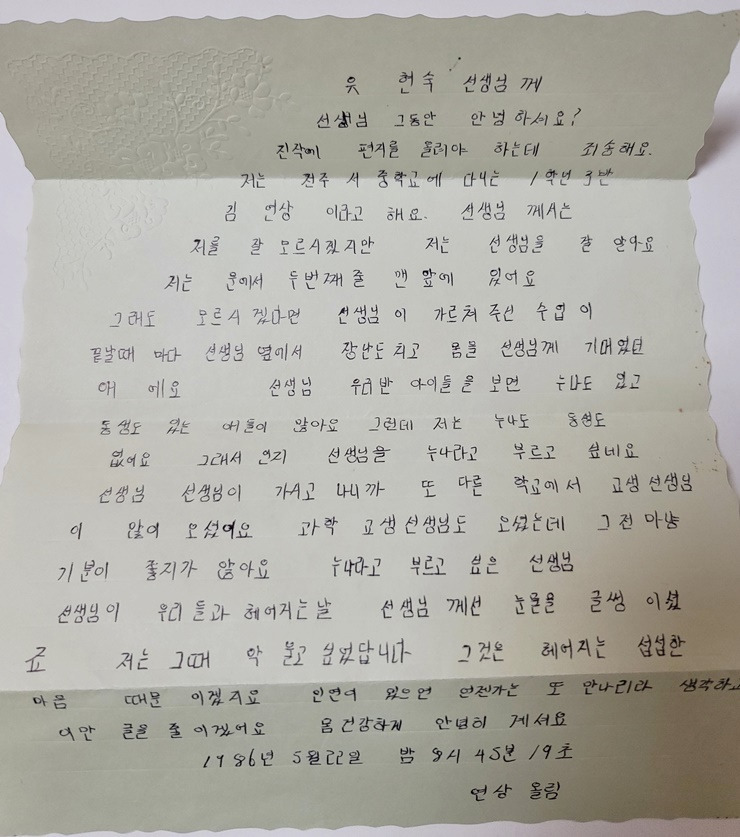 윳 현숙 선생님 께
선생님 그동안 안녕하세요?
진작에 편지를 올려야 하는데 죄송해요.
저는 전주 서 중학교에 다니는 1학년 3반
김 연상 이라고 해요. 선생님 께서는
저를 잘 모르시겠지만 저는 선생님을 잘 알아요
저는 문에서 두번째줄 맨 앞에 있어요
그래도 모르시 겠다면 선생님이 가르쳐 주신 수업이
끝날때 마다 선생님 옆에서 장난도치고 몸을 선생님께 기대었던
애 에요 선생님 우리반 아이들을 보면 누나도 있고
동생도 있는 애들이 많아요 그런데 저는 누나도 동생도
없어요 그래서 인지 선생님을 누나라고 부르고 싶네요
선생님 선생님이 가시고 나니까 또 다른 학교에서 교생선생님
이 많이 오셨어요 과학 교생선생님도 오셨는데 그전 마냥
기분이 좋지가 않아요 누나라고 부르고 싶은 선생님
선생님이 우리들과 헤어지는날 선생님 께선 눈물을 글썽 이셨
죠 저는 그때 막 울고 싶었답니다 그것은 헤어지는 섭섭한
마음 때문 이겠지요 인연이 있으면 언젠가는 또 만나리라 생각하고
이만 글을 줄이겠어요 몸건강하게 안녕히 계셔요
1986년 5월22일 밤 8시 45분 19초
연상 올림